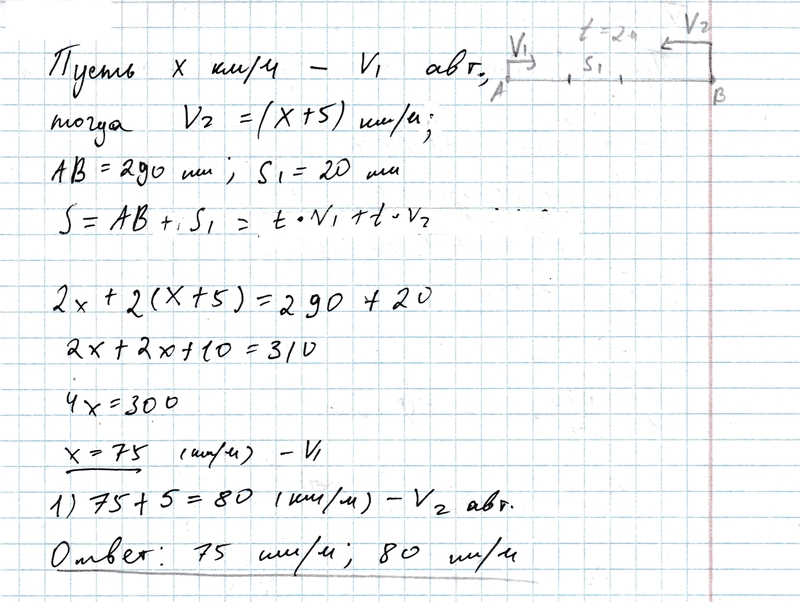 Пусть x км/ч – V₁ авт.,
тогда V₂ = (x+5) км/ч;
AB = 290 км; S₁ = 20 км
S = AB + S₁ = t · V₁ + t · V₂
V₁ t = 2ч V₂
A S₁ B
2x + 2(x+5) = 290 + 20
2x + 2x + 10 = 310
4x = 300
x = 75 (км/ч) – V₁
1) 75 + 5 = 80 (км/ч) – V₂ авт.
Ответ: 75 км/ч; 80 км/ч